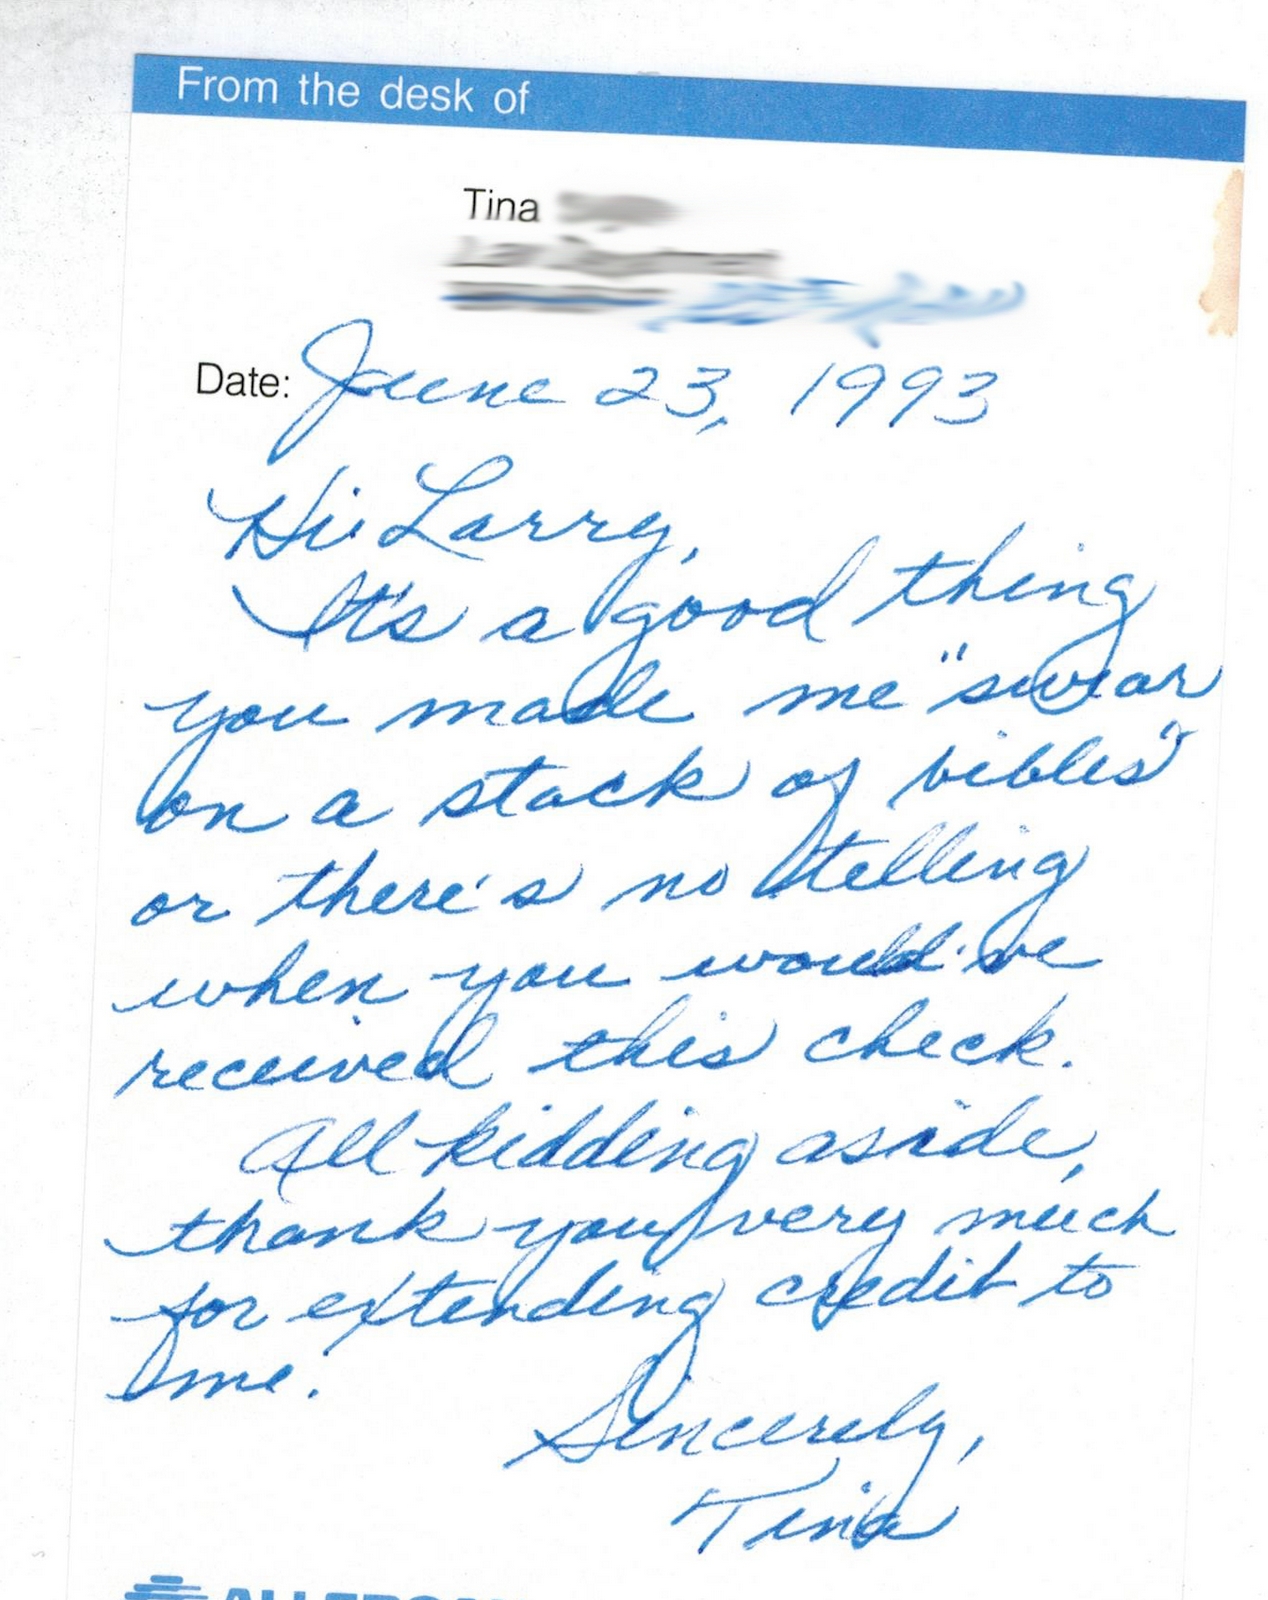 From the desk of
Tina
Date: June 23, 1993
Hi Larry,
It's a good thing
you made me "swear
on a stack of bibles"
or there's no telling
when you would've
received this check.
All kidding aside,
thank you very much
for extending credit to
me.
Sincerely,
Tina